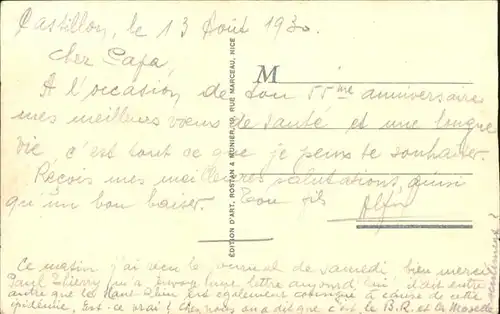 Castillon, le 13 Août 1930
Cher Papa,
M
A l'occasion de ton 55me anniversaire
mes meilleurs vœux de santé et une longue
vie, c'est tout ce que je peux te souhaiter.
Reçois mes meilleures salutations, ainsi
qu'un bon baiser. Ton fils
ÉDITION D'ART, ROSTAN & MUNIER, RUE MARCEAU, NICE
Ce matin j'ai reçu le journal de samedi, bien merci
Paul Thierry m'a envoyé une lettre aujourd'hui
que le Haut-Rhin est également consigné à cause de cette
épidémie, est-ce vrai? Chez nous on a dit que c'est le B.R. et la Moselle
seulement?